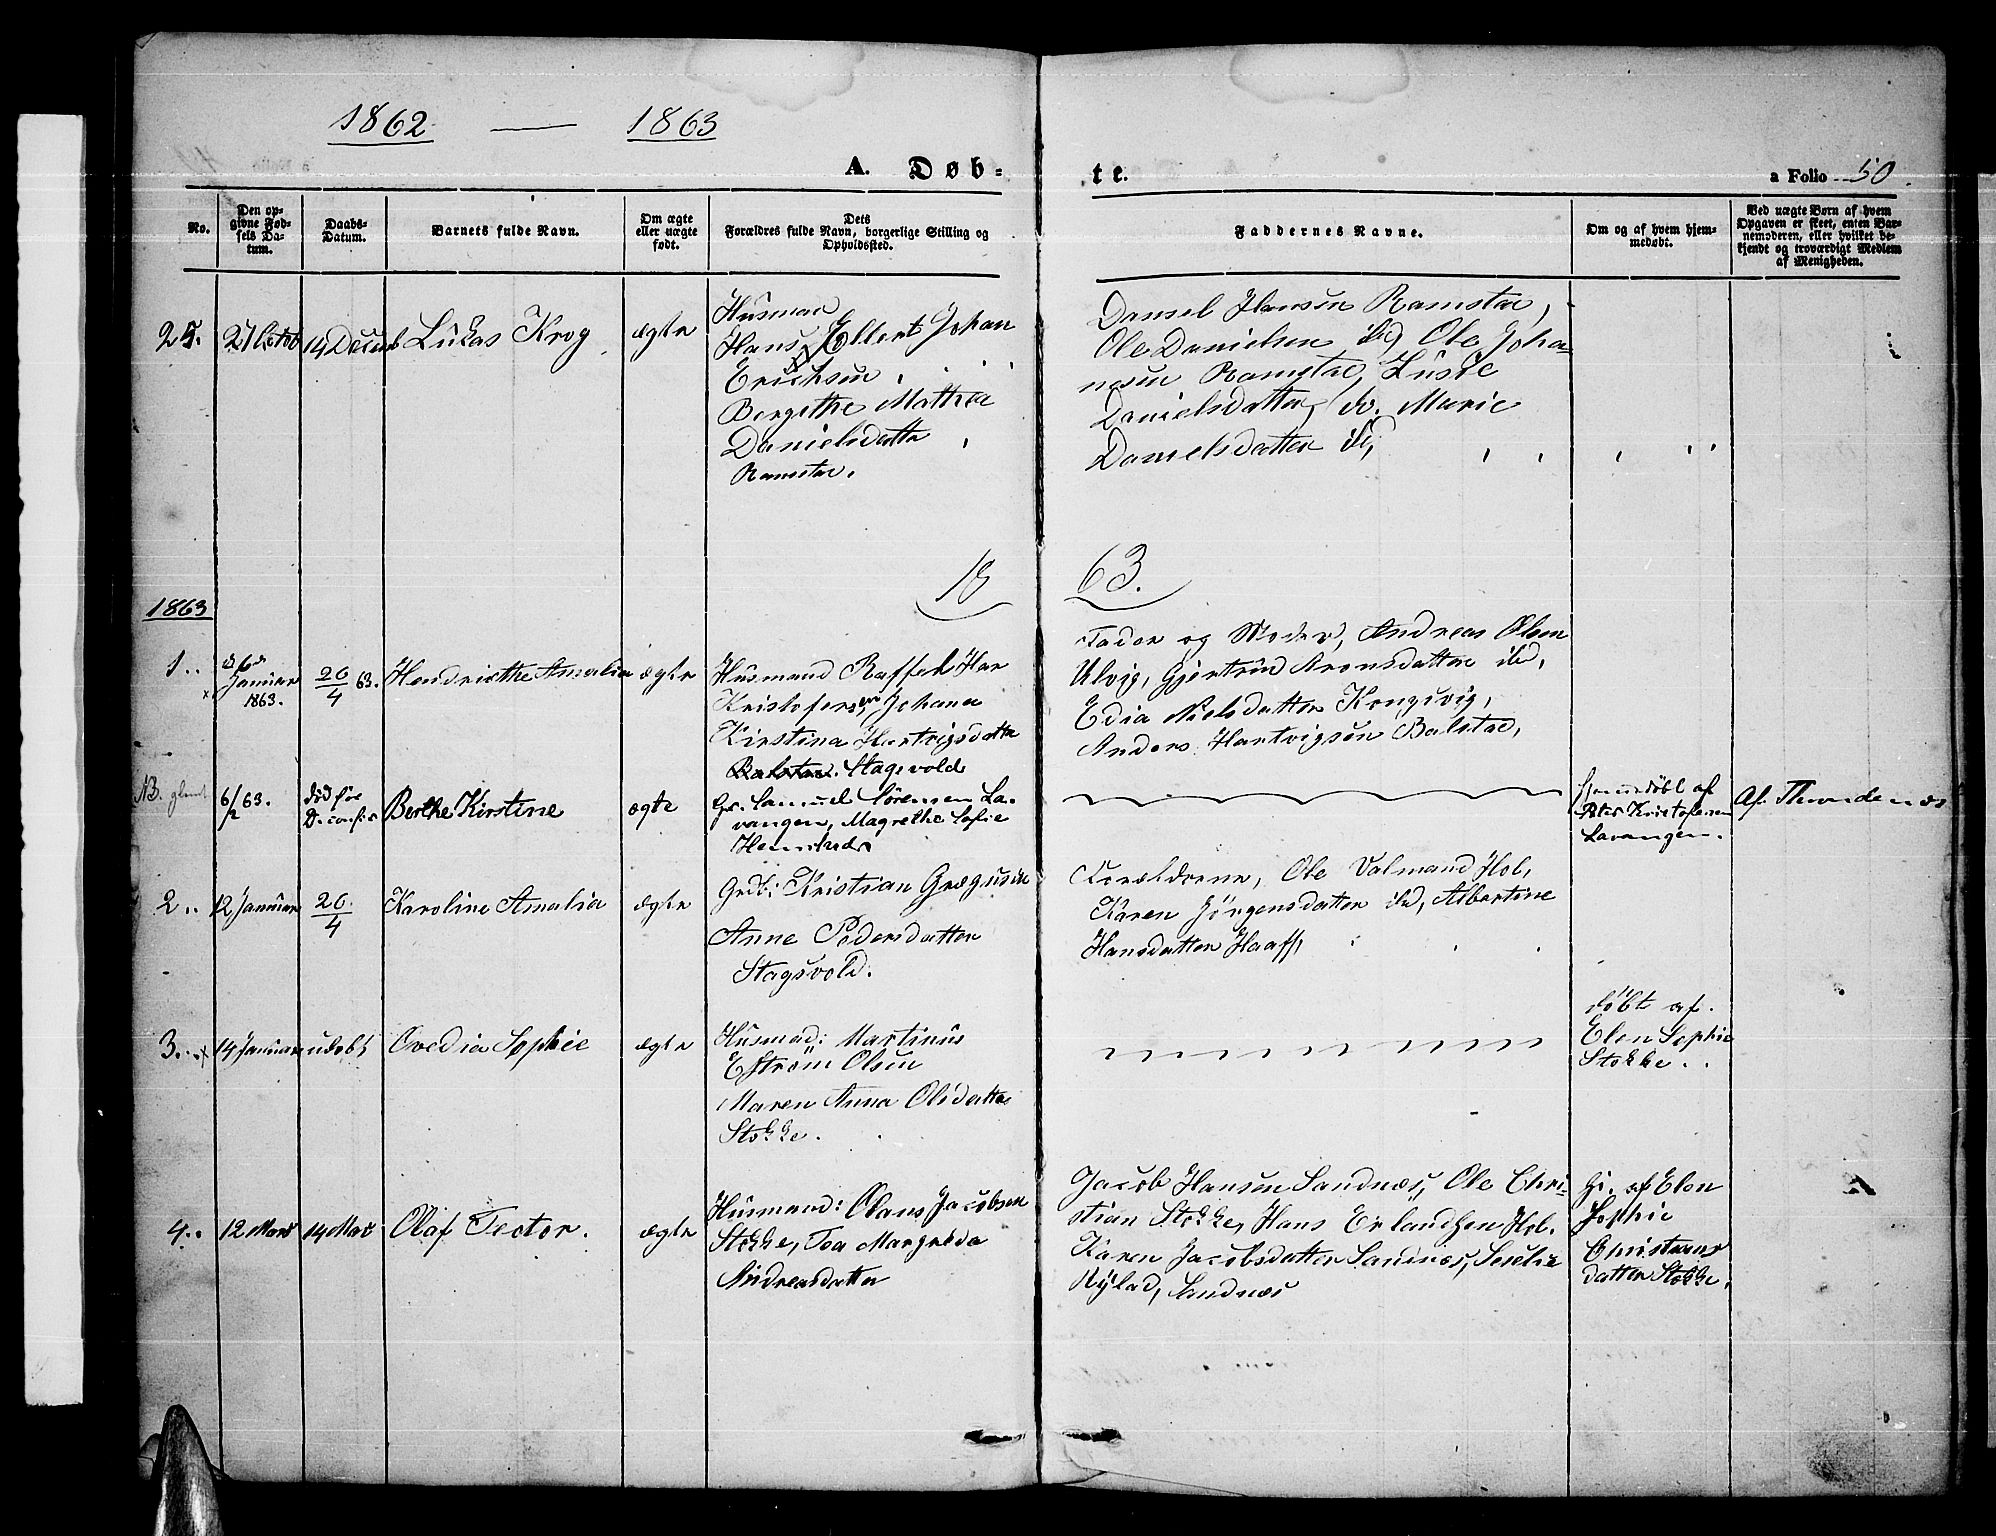 1862 — 1863
A. Døb-
te.
a Folio 50.
No.
Den op-
givne Fød-
sels Da-
tum.
Daabs-
Datum.
Barnets fulde Navn.
Om ægte
eller uægte
født.
Dets
Forældres fulde Navn, borgerlige Stilling og
Opholdssted.
Faddernes Navne.
Om og af hvem hjem-
medøbt.
Ved uægte Børn af hvem
Opgaven er skeet, enten Bar-
nemoderen, eller hvilket be-
kjendt og troværdigt Medlem
af Menigheden.
25. 27 Octob 14 Decemb Lukas Krog ægte
Husman
Hans Ellert Johan
Erichsen
Bergithe Mathea
Danielsdatter
Ramstae.
Daniel Hansen Ramstae,
Ole Danielsen ibd, Ole Joha-
nesen Ramstae, Lusie
Danielsdatter, do. Marie
Danielsdatter ibd,
18 63.
1863
1.. Januar 1863. 26/4 63. Hendriethe Amalia ægte
Husmand Raffel Har
Kristofersen, Johana
Kirstina Hartvigsdatter
Balstae. Stagsvold
Fader og Moder, Andreas Olsen
Ulvig, Gjertrud Aronsdatter ibd,
Edia Nielsdatter Kongsvig,
Anders Hartvigsen Balstae,
NB. glemt 6/2 63. død før Berthe Kirstine ægte
Gr. Samuel Sørensen La-
vangen, Magrethe Sofie
Hjemmedøbt af
Peter Kristofersen
Lavangen.
Af Thundenæs
2.. 12 Januar 26/4 Karoline Amalia ægte
Grdb: Kristian Gregusen
Anne Pedersdatter
Stagsvold.
Forældrene, Ole Valmand Hol,
Karen Jörgensdatter ibd, Albertine
Hansdatter Haaff,
3.. x 14 Januar udøbt Ovedia Sophie ægte
Husmad: Martinus
Eström Olsen
Maren Anna Olsdatter
Stokke.
döbt af.
Elen Sophie
Stokke..
4.. 12 Mars 14 Mai Olaf Tector. ægte
Husmand: Olaus Jacobsen
Stokke, Toa Margreda
Andreasdatter
Jacob Hansen Sandnæs, Ole Chri-
stian Stokke, Hans Erlandsen Hol.
Karen Jacobsdatter Sandnæs, Seselie
Nylad, Sandnæs
Gi. af Elen
Sophie
Christians
datter Stokke.